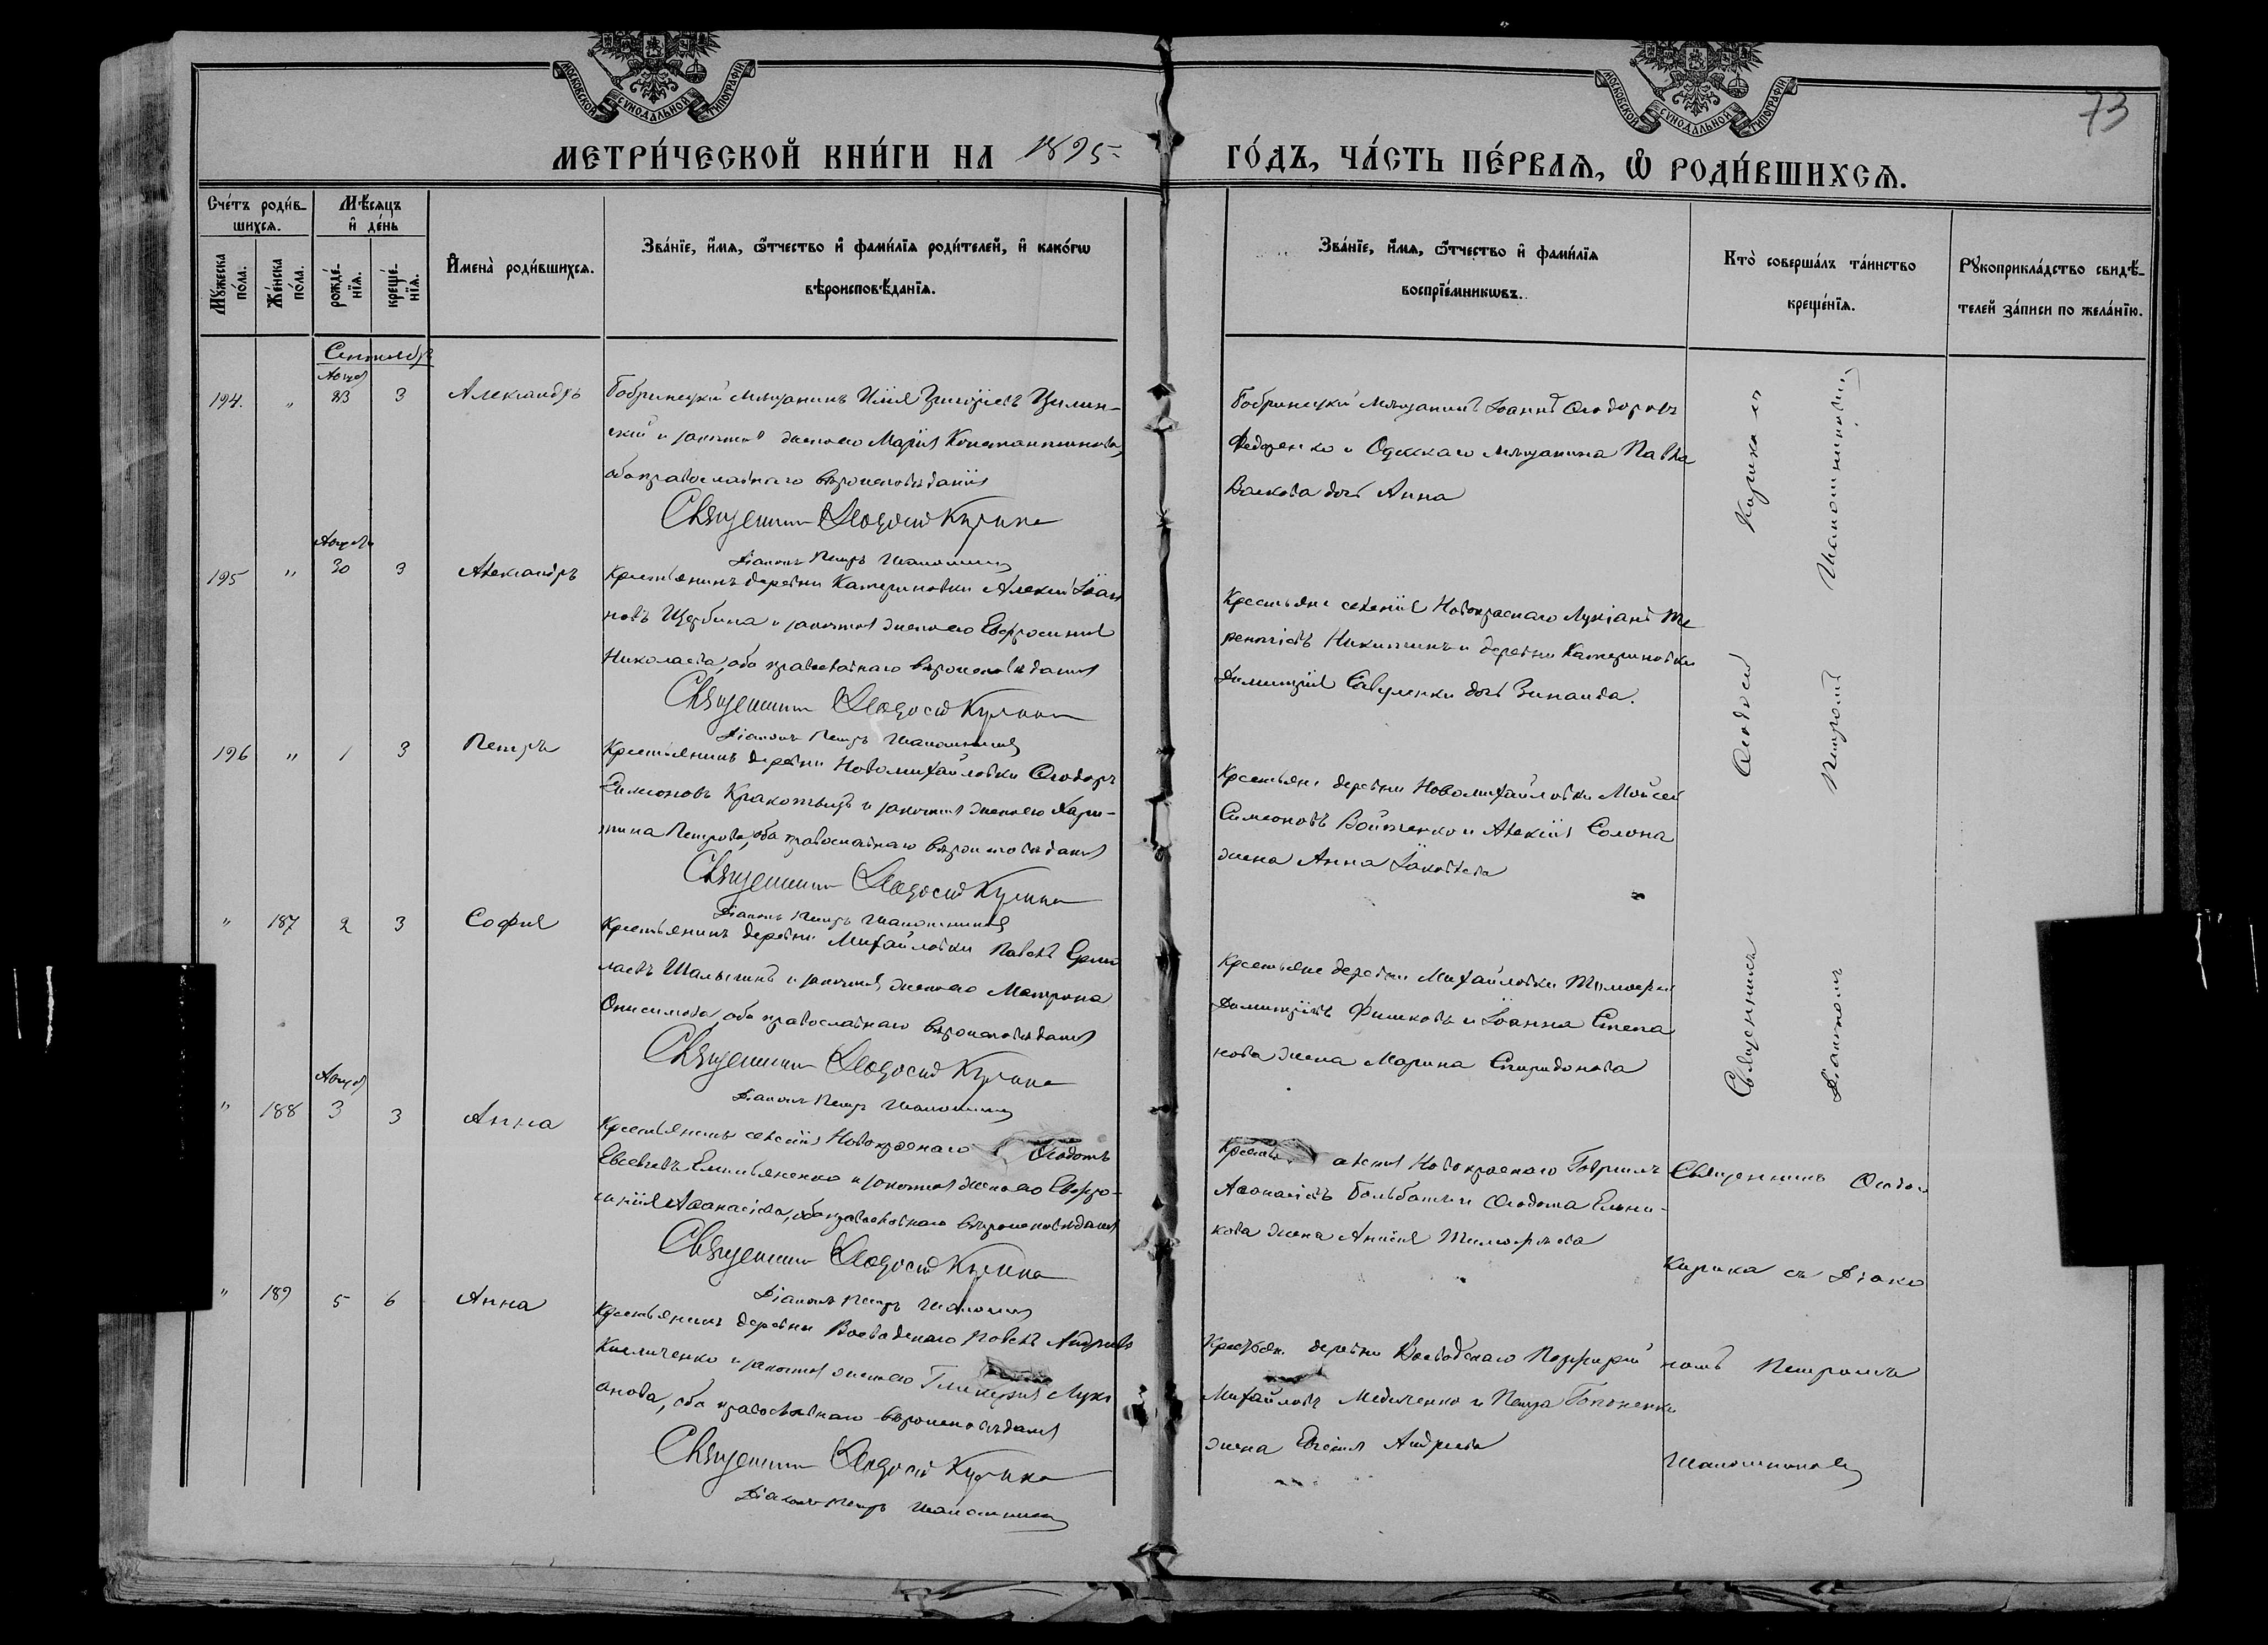 МОСКОВСКОЙ СѴНОДАЛЬНОЙ ТИПОГРАФІИ
МОСКОВСКОЙ СѴНОДАЛЬНОЙ ТИПОГРАФІИ
73
МЕТРИ́ЧЕСКОЙ КНИ́ГИ НА 1895 ГО́ДЪ, ЧА́СТЬ ПЕ́РВАѦ, Ѡ РОДИ́ВШИХСѦ.
Сче́тъ роди́в-
шихсѧ.
Мꙋ́жеска по́ла.
Же́нска по́ла.
Мѣ́сѧцъ
и де́нь
рожде́-
нїѧ.
креще́-
нїѧ.
Имена̀ роди́вшихсѧ.
Зва́нїе, и́мѧ, ѻ́тчество и фами́лїѧ роди́телей, и како́гѡ
вѣроисповѣ́данїѧ.
Зва́нїе, и́мѧ, ѻ́тчество и фами́лїѧ
воспрїе́мникѡвъ.
Кто̀ соверша́лъ та́инство
креще́нїѧ.
Рꙋкоприкла́дство свидѣ́-
телей за́писи по жела́нїю.
Сентябрь
Авгус
194. " 23 3 Александръ
Бобринецкій мѣщанинъ Илія Григоріевъ
и законная жена его Марія Константинова,
оба православнаго вѣроисповѣданія
Священникъ Ѳеодосій Кирика
Діаконъ Петръ Шапошниковъ
Бобринецкій мѣщанинъ Іоаннъ Ѳеодоровъ
Федоренко и Одесскаго мѣщанина Павла
Волкова дочь Анна
Августа
195 " 30 3 Александръ
Крестьянинъ деревни Катериновки Алексій Іоан
новъ Щербина и законная жена его Евфросинія
Николаева, оба православнаго вѣроисповѣданія
Священникъ Ѳеодосій Кирика
Діаконъ Петръ Шапошниковъ
Крестьяне селенія Новокраснаго Лукіанъ Те
рентіевъ Никитинъ и деревни Катериновки
Димитрія Савуленки дочь Зинаида.
196 " 1 3 Петръ
Крестьянинъ деревни Новомихайловки Ѳеодоръ
Симеоновъ и законная жена его Хари-
тина Петрова, оба православнаго вѣроисповѣданія
Священникъ Ѳеодосій Кирика
Діаконъ Петръ Шапошниковъ
Крестьяне деревни Новомихайловки Моисей
Симеоновъ Войтенко и Алексія Солона
жена Анна Іаковлева
" 187 2 3 Софія
Крестьянинъ деревни Михайловки Павелъ Ермо
лаевъ Шалыгинъ и законная жена его Матрона
Онисимова, оба православнаго вѣроисповѣданія
Священникъ Ѳеодосій Кирика
Діаконъ Петръ Шапошниковъ
Крестьяне деревни Михайловки Тимоѳей
Димитріевъ Фишковъ и Іоанна Степа
нова жена Марина Спиридонова
Священникъ Ѳеодосій Кирика съ
Діакономъ Петромъ Шапошниковымъ
Авгус
" 188 3 3 Анна
Крестьянинъ селенія Новокраснаго Ѳеодотъ
Евсевіевъ Емельяненко и законная жена его Евфро-
синія Аѳанасіева, оба православнаго вѣроисповѣданія
Священникъ Ѳеодосій Кирика
Діаконъ Петръ Шапошниковъ
Новокраснаго Гавріилъ
Аѳанасіевъ и Ѳеодота Ельни-
кова жена Анисія Тимоѳеева
" 189 5 6 Анна
Крестьянинъ деревни Воеводскаго Павелъ Андреевъ
Кисличенко и законная жена его Гликерія Луки
анова, оба православнаго вѣроисповѣданія
Священникъ Ѳеодосій Кирика
Діаконъ Петръ Шапошниковъ
деревни Воеводскаго Порфирій
Михайловъ Медиченко и Петра Гапоненки
жена Евгенія Андреева
Священникъ Ѳеодосій
Кирика съ Діако
номъ Петромъ
Шапошниковымъ